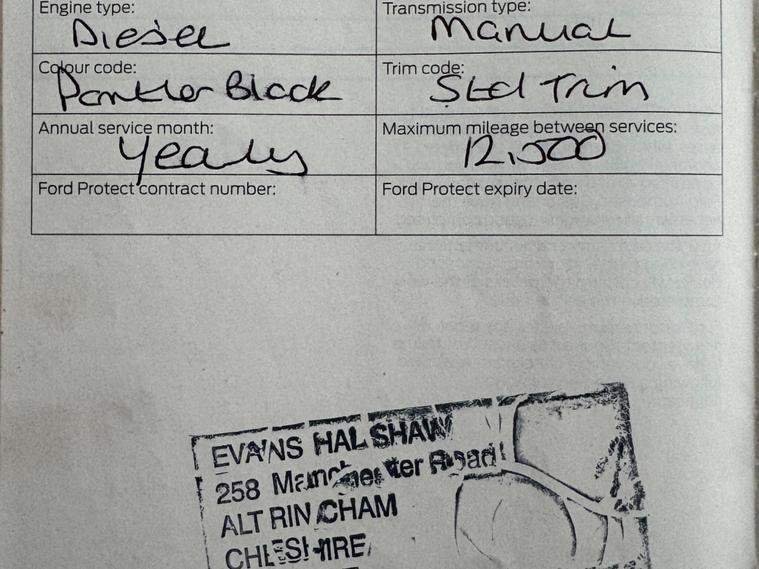 Engine type: Transmission type:
Diesel Manual
Colour code: Trim code:
Pantler Black Std Trim
Annual service month: Maximum mileage between services:
Yealy 12,500
Ford Protect contract number: Ford Protect expiry date:
EVANS HALSHAW
258 Manchester Road
ALTRINCHAM
CHESHIRE